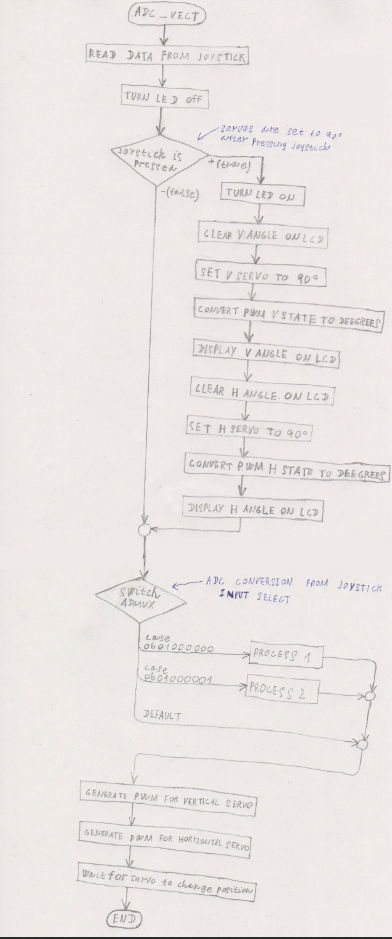 ADC_VECT
READ DATA FROM JOYSTICK
TURN LED OFF
SERVOS ARE SET TO 90°
after pressing joystick
Joystick is
Pressed
+(true)
-(false)
TURN LED ON
CLEAR V ANGLE ON LCD
SET V SERVO TO 90°
CONVERT PWM V STATE TO DEEGREES
DISPLAY V ANGLE ON LCD
CLEAR H ANGLE ON LCD
SET H SERVO TO 90°
CONVERT PWM H STATE TO DEEGREES
DISPLAY H ANGLE ON LCD
Switch
ADMUX
ADC CONVERSION FROM JOYSTICK
INPUT SELECT
case
0b01000000
PROCESS 1
case
0b01000001
PROCESS 2
DEFAULT
GENERATE PWM FOR VERTICAL SERVO
GENERATE PWM FOR HORIZONTAL SERVO
Wait for servo to change position
END